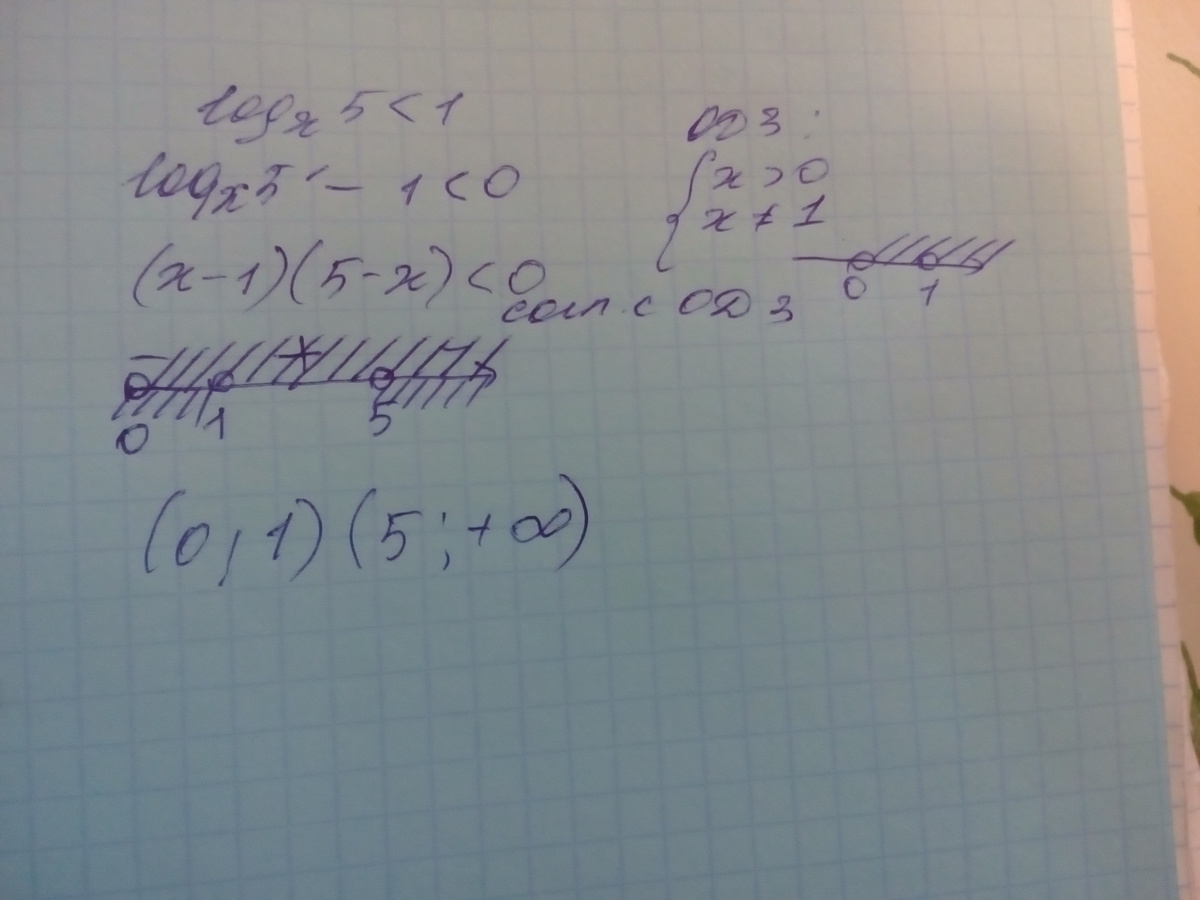 log_x 5 < 1
log_x 5 - 1 < 0
(x-1)(5-x) < 0
ОДЗ:
{x > 0
x ≠ 1
0 1
согл. с ОДЗ
- + -
0 1 5
(0, 1) (5; +∞)